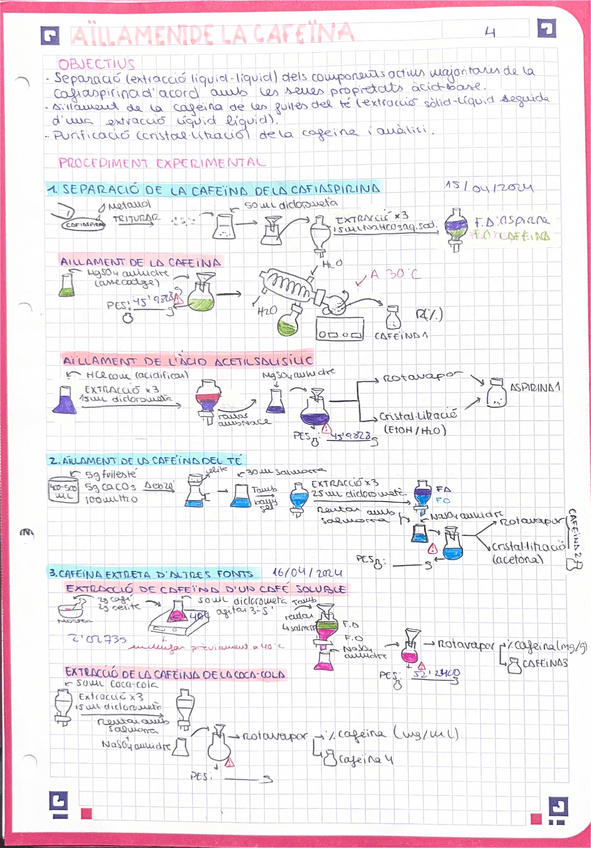 AÏLLAMENT DE LA CAFEÏNA
4
OBJECTIUS
· Separació (extracció líquid-líquid) dels components actius majoritaris de la
cafiaspirina d'acord amb les seves propietats àcid-base.
· Aïllament de la cafeïna de les fulles del té (extracció sòlid-líquid seguida
d'una extracció líquid líquid).
· Purificació (cristal·lització) de la cafeïna i anàlisi.
PROCEDIMENT EXPERIMENTAL
1. SEPARACIÓ DE LA CAFEÏNA DE LA CAFIASPIRINA
15/04/2024
Metanol
TRITURAR
CAFIASPIRINA
50 mL diclorometà
EXTRACCIÓ x3
15 mL NaHCO3 aq. sat.
F.A: ASPIRINA
F.O: CAFEÏNA
AILLAMENT DE LA CAFEINA
MgSO4 anhidre
(assecatge)
PES: g
H2O
A 30°C
H2O
R(%)
CAFEÏNA 1
AÏLLAMENT DE L'ÀCID ACETILSALISÍLIC
HCl com (acidificar)
EXTRACCIÓ x3
15 mL diclorometà
MgSO4 anhidre
PES: g
Rotavapor
Cristal·lització
(EtOH/H2O)
ASPIRINA 1
2. AÏLLAMENT DE LA CAFEÏNA DEL TÉ
400-500
mL
5g fulles té
5g CaCO3
100 mL H2O
celite
30 mL salmorra
EXTRACCIÓ x3
25 mL diclorometà
FA
FO
Rentar amb
salmorra
NaSO4 anhidre
Rotavapor
Cristal·lització
(acetona)
CAFEÏNA 2
PES: g
3. CAFEÏNA EXTRETA D'ALTRES FONTS
16/04/2024
EXTRACCIÓ DE CAFEÏNA D'UN CAFÉ SOLUBLE
2g cafè
2g celite
2'0273g
50 mL diclorometà
agitar 3-5'
previament a 40°C
rentar
salmorra
F.A
F.O
NaSO4
anhidre
PES: 52'2460 g
Rotavapor
% cafeïna (mg/g)
CAFEÏNA 3
EXTRACCIÓ DE LA CAFEÏNA DE LA COCA-COLA
50 mL coca-cola
Extracció x3
15 mL diclorometà
Rentar amb
salmorra
NaSO4 anhidre
Rotavapor
% cafeïna (mg/mL)
cafeïna 4
PES: g